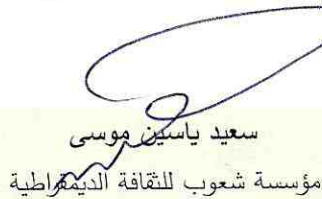 سعيد ياسين موسى
مؤسسة شعوب للثقافة الديمقراطية